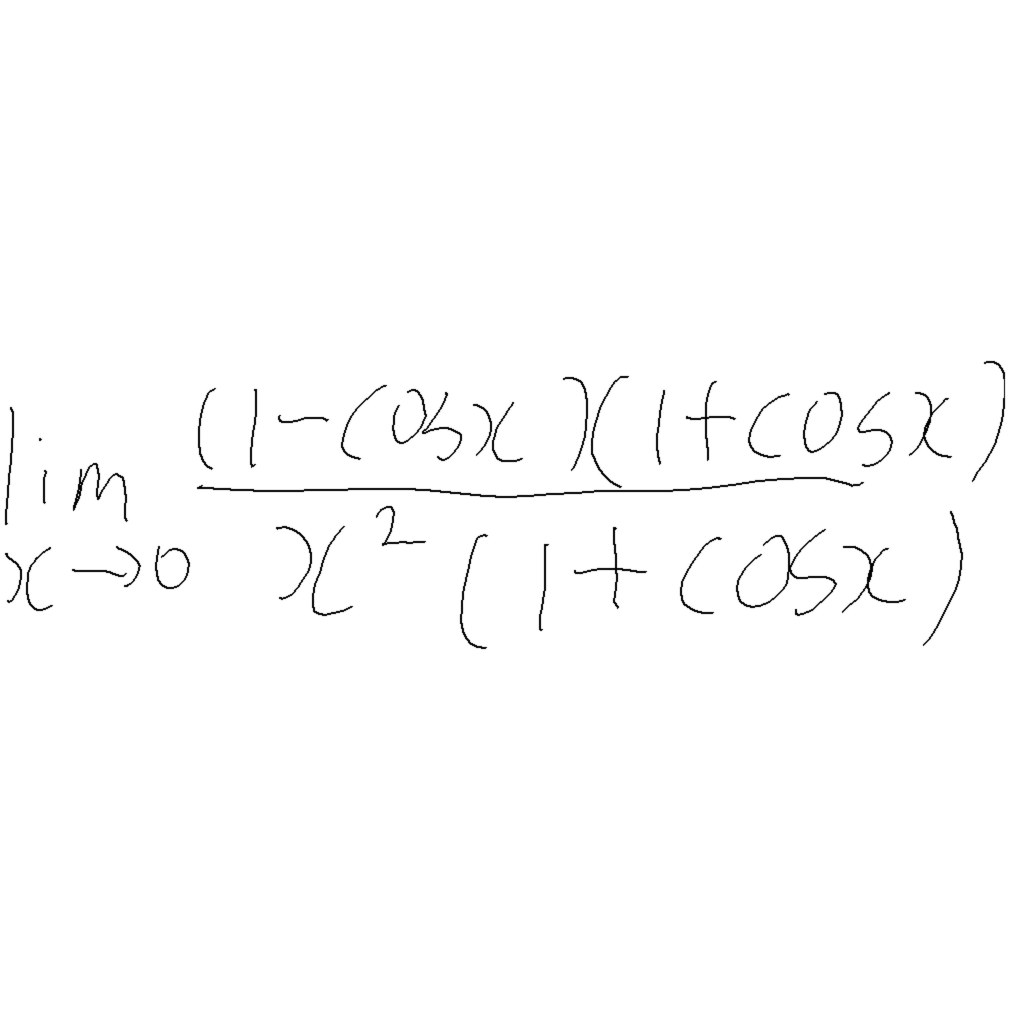 lim (1-cosx)(1+cosx)
x→0 x² (1+cosx)